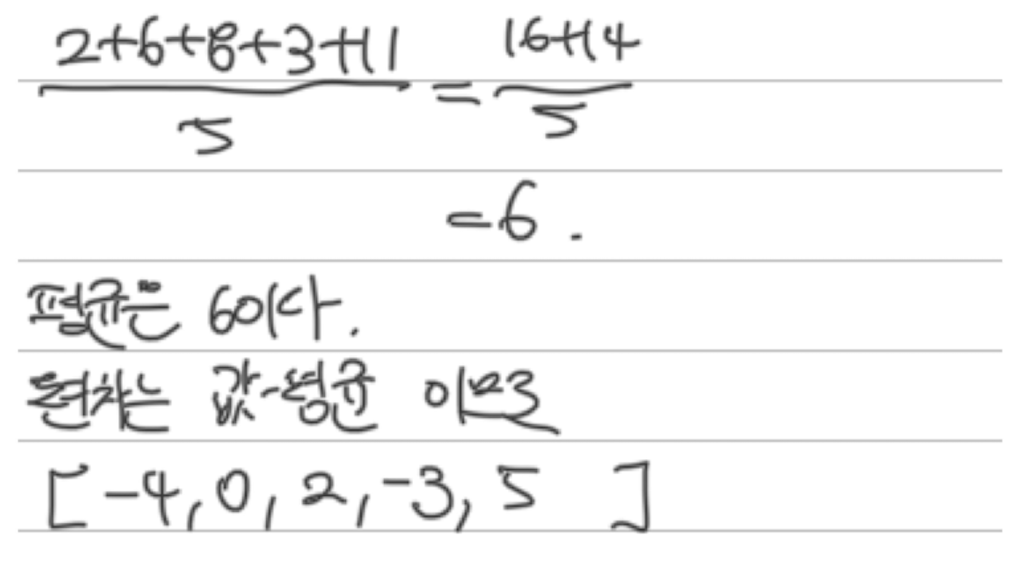 2+6+8+3+11 / 5 = 16+14 / 5
=6.
평균은 6이다.
편차는 값-평균 이므로
[-4, 0, 2, -3, 5 ]